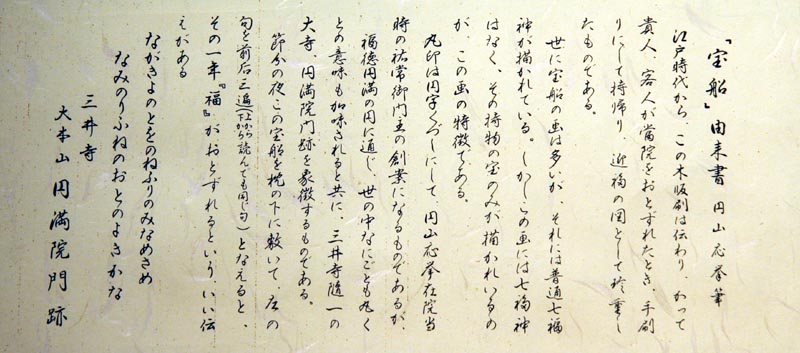 「宝船」由来書 円山応挙筆
江戸時代から、この木版刷は伝わり、かつて
貴人、客人が当院をおとずれたとき、手刷
りにして持帰り、迎福の図として珍重し
たものである。
世に宝船の画は多いが、それには普通七福
神が描かれている。しかしこの画には七福神
はなく、その持物の宝のみが描かれいるの
が、この画の特徴である。
丸印は円字くづしにして、円山応挙在院当
時の祐常御門主の創業になるものであるが
福徳円満の円に通じ、世の中なにごとも丸く
との意味も加味されると共に、三井寺随一の
大寺、円満院門跡を象徴するものである。
節分の夜この宝船を枕の下に敷いて、左の
句を前后三遍(上下から読んでも同じ句)となえると、
その一年『福』がおとずれるという、いい伝
えがある
ながきよのとをのねふりのみなめさめ
なみのりふねのおとのよきかな
三井寺
大本山 円満院門跡